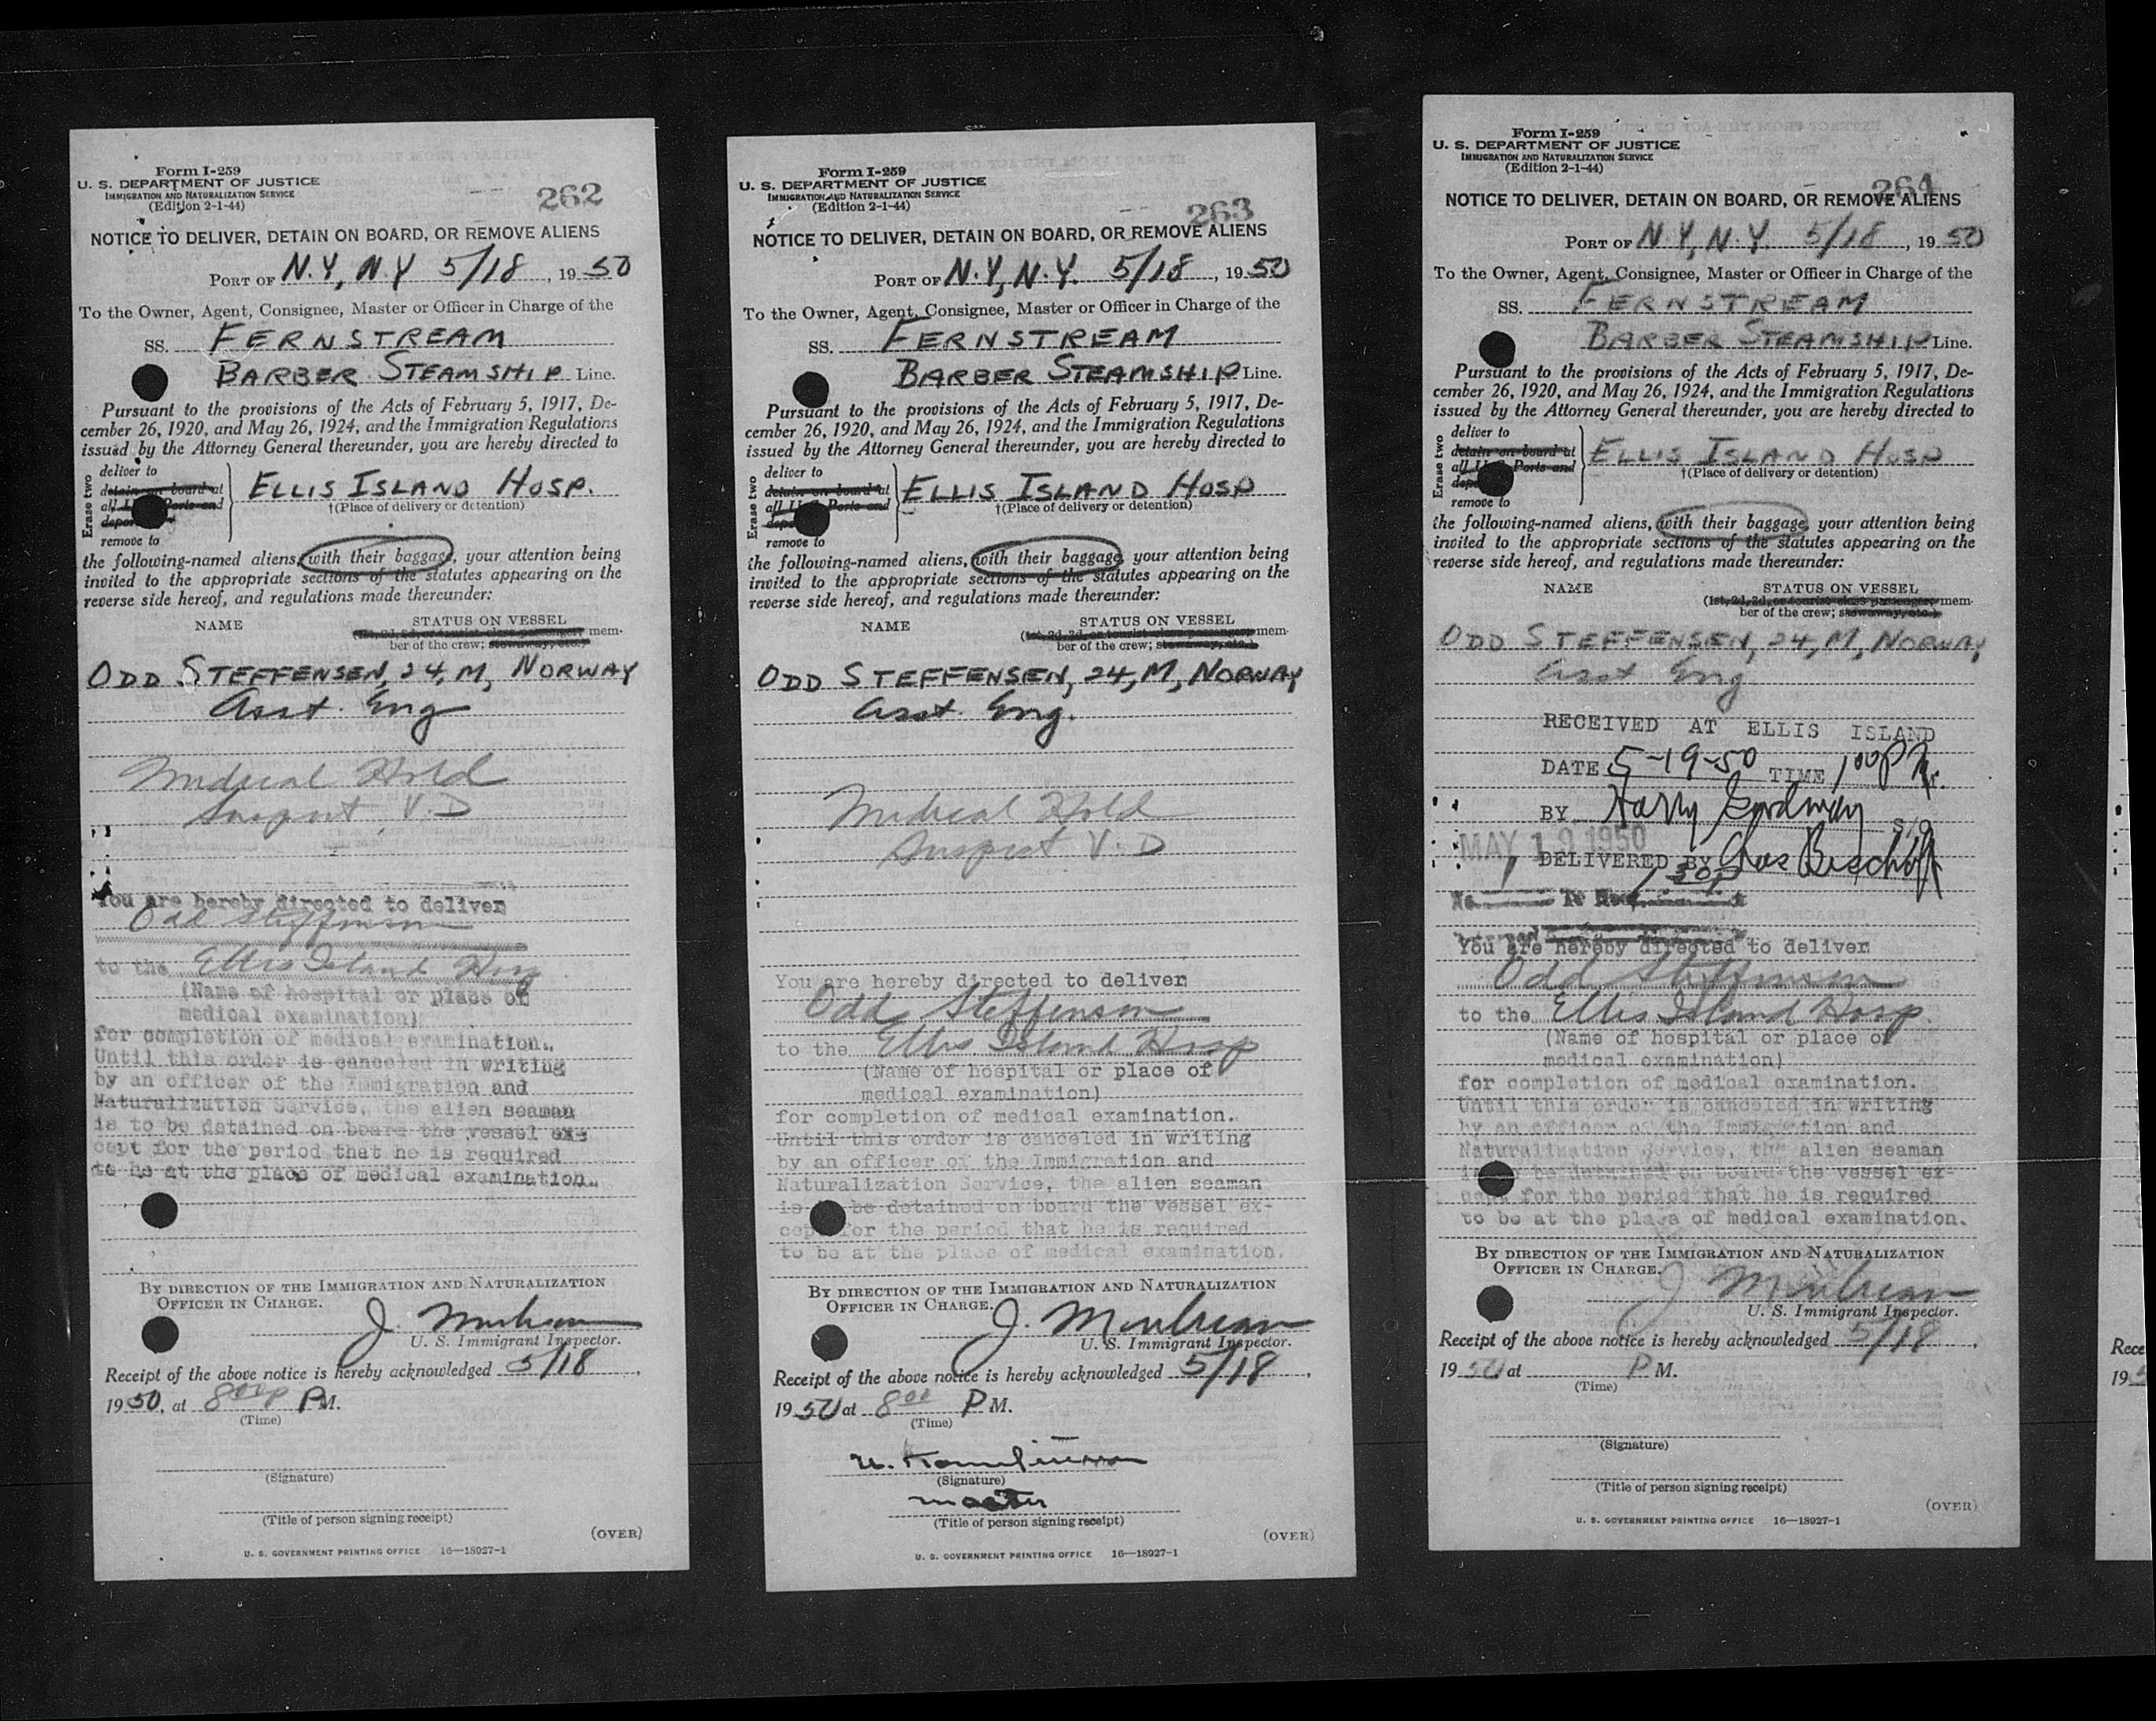 Form I-259
U. S. DEPARTMENT OF JUSTICE
IMMIGRATION AND NATURALIZATION SERVICE
(Edition 2-1-44)
262
NOTICE TO DELIVER, DETAIN ON BOARD, OR REMOVE ALIENS
PORT OF N.Y, N.Y 5/18, 1950
To the Owner, Agent, Consignee, Master or Officer in Charge of the
SS. FERNSTREAM
BARBER STEAMSHIP Line.
Pursuant to the provisions of the Acts of February 5, 1917, De-
cember 26, 1920, and May 26, 1924, and the Immigration Regulations
issued by the Attorney General thereunder, you are hereby directed to
Erase two
deliver to
detain on board at
all Ports and
remove to
ELLIS ISLAND HOSP.
†(Place of delivery or detention)
the following-named aliens, with their baggage, your attention being
invited to the appropriate sections of the statutes appearing on the
reverse side hereof, and regulations made thereunder:
NAME
STATUS ON VESSEL
(1st, 2d, 3d, or tourist class passenger, mem-
ber of the crew; stowaway, etc.)
ODD STEFFENSEN, 24, M, NORWAY
Asst. Eng
Medical Hold
Suspect V.D
You are hereby directed to deliver
Odd Steffensen
to the Ellis Island Hosp
(Name of hospital or place of
medical examination)
for completion of medical examination.
Until this order is canceled in writing
by an officer of the Immigration and
Naturalization Service, the alien seaman
is to be detained on board the vessel ex-
cept for the period that he is required
to be at the place of medical examination.
BY DIRECTION OF THE IMMIGRATION AND NATURALIZATION
OFFICER IN CHARGE.
J.
U. S. Immigrant Inspector.
Receipt of the above notice is hereby acknowledged 5/18,
1950, at 8 00 P M.
(Time)
(Signature)
(Title of person signing receipt)
(OVER)
U. S. GOVERNMENT PRINTING OFFICE 16—18927-1
Form I-259
U. S. DEPARTMENT OF JUSTICE
IMMIGRATION AND NATURALIZATION SERVICE
(Edition 2-1-44)
263
NOTICE TO DELIVER, DETAIN ON BOARD, OR REMOVE ALIENS
PORT OF N.Y, N.Y. 5/18, 1950
To the Owner, Agent, Consignee, Master or Officer in Charge of the
SS. FERNSTREAM
BARBER STEAMSHIP Line.
Pursuant to the provisions of the Acts of February 5, 1917, De-
cember 26, 1920, and May 26, 1924, and the Immigration Regulations
issued by the Attorney General thereunder, you are hereby directed to
Erase two
deliver to
detain on board at
all Ports and
remove to
ELLIS ISLAND HOSP
†(Place of delivery or detention)
the following-named aliens, with their baggage, your attention being
invited to the appropriate sections of the statutes appearing on the
reverse side hereof, and regulations made thereunder:
NAME
STATUS ON VESSEL
(1st, 2d, 3d, or tourist class passenger, mem-
ber of the crew; stowaway, etc.)
ODD STEFFENSEN, 24, M, NORWAY
Asst. Eng.
Medical Hold
Suspect V.D
You are hereby directed to deliver
Odd Steffensen
to the Ellis Island Hosp
(Name of hospital or place of
medical examination)
for completion of medical examination.
Until this order is canceled in writing
by an officer of the Immigration and
Naturalization Service, the alien seaman
is be detained on board the vessel ex-
cept for the period that he is required
to be at the place of medical examination.
BY DIRECTION OF THE IMMIGRATION AND NATURALIZATION
OFFICER IN CHARGE.
J.
U. S. Immigrant Inspector.
Receipt of the above notice is hereby acknowledged 5/18,
1950 at 8 00 P M.
(Time)
(Signature)
master
(Title of person signing receipt)
(OVER)
U. S. GOVERNMENT PRINTING OFFICE 16—18927-1
Form I-259
U. S. DEPARTMENT OF JUSTICE
IMMIGRATION AND NATURALIZATION SERVICE
(Edition 2-1-44)
264
NOTICE TO DELIVER, DETAIN ON BOARD, OR REMOVE ALIENS
PORT OF N.Y, N.Y. 5/18, 1950
To the Owner, Agent, Consignee, Master or Officer in Charge of the
SS. FERNSTREAM
BARBER STEAMSHIP Line.
Pursuant to the provisions of the Acts of February 5, 1917, De-
cember 26, 1920, and May 26, 1924, and the Immigration Regulations
issued by the Attorney General thereunder, you are hereby directed to
Erase two
deliver to
detain on board at
all Ports and
remove to
ELLIS ISLAND HOSP
†(Place of delivery or detention)
the following-named aliens, with their baggage, your attention being
invited to the appropriate sections of the statutes appearing on the
reverse side hereof, and regulations made thereunder:
NAME
STATUS ON VESSEL
(1st, 2d, 3d, or tourist class passenger, mem-
ber of the crew; stowaway, etc.)
ODD STEFFENSEN, 24, M, NORWAY
Asst Eng
RECEIVED AT ELLIS ISLAND
DATE 5-19-50 TIME 1 00 P M.
BY Harry
MAY 19 1950
DELIVERED BY Chas Bischoff
You are hereby directed to deliver
Odd Steffensen
to the Ellis Island Hosp
(Name of hospital or place of
medical examination)
for completion of medical examination.
Until this order is canceled in writing
by an officer of the Immigration and
Naturalization Service, the alien seaman
be detained on board the vessel ex-
cept for the period that he is required
to be at the place of medical examination.
BY DIRECTION OF THE IMMIGRATION AND NATURALIZATION
OFFICER IN CHARGE.
J.
U. S. Immigrant Inspector.
Receipt of the above notice is hereby acknowledged 5/18,
1950 at P M.
(Time)
(Signature)
(Title of person signing receipt)
(OVER)
U. S. GOVERNMENT PRINTING OFFICE 16—18927-1
Rece
19